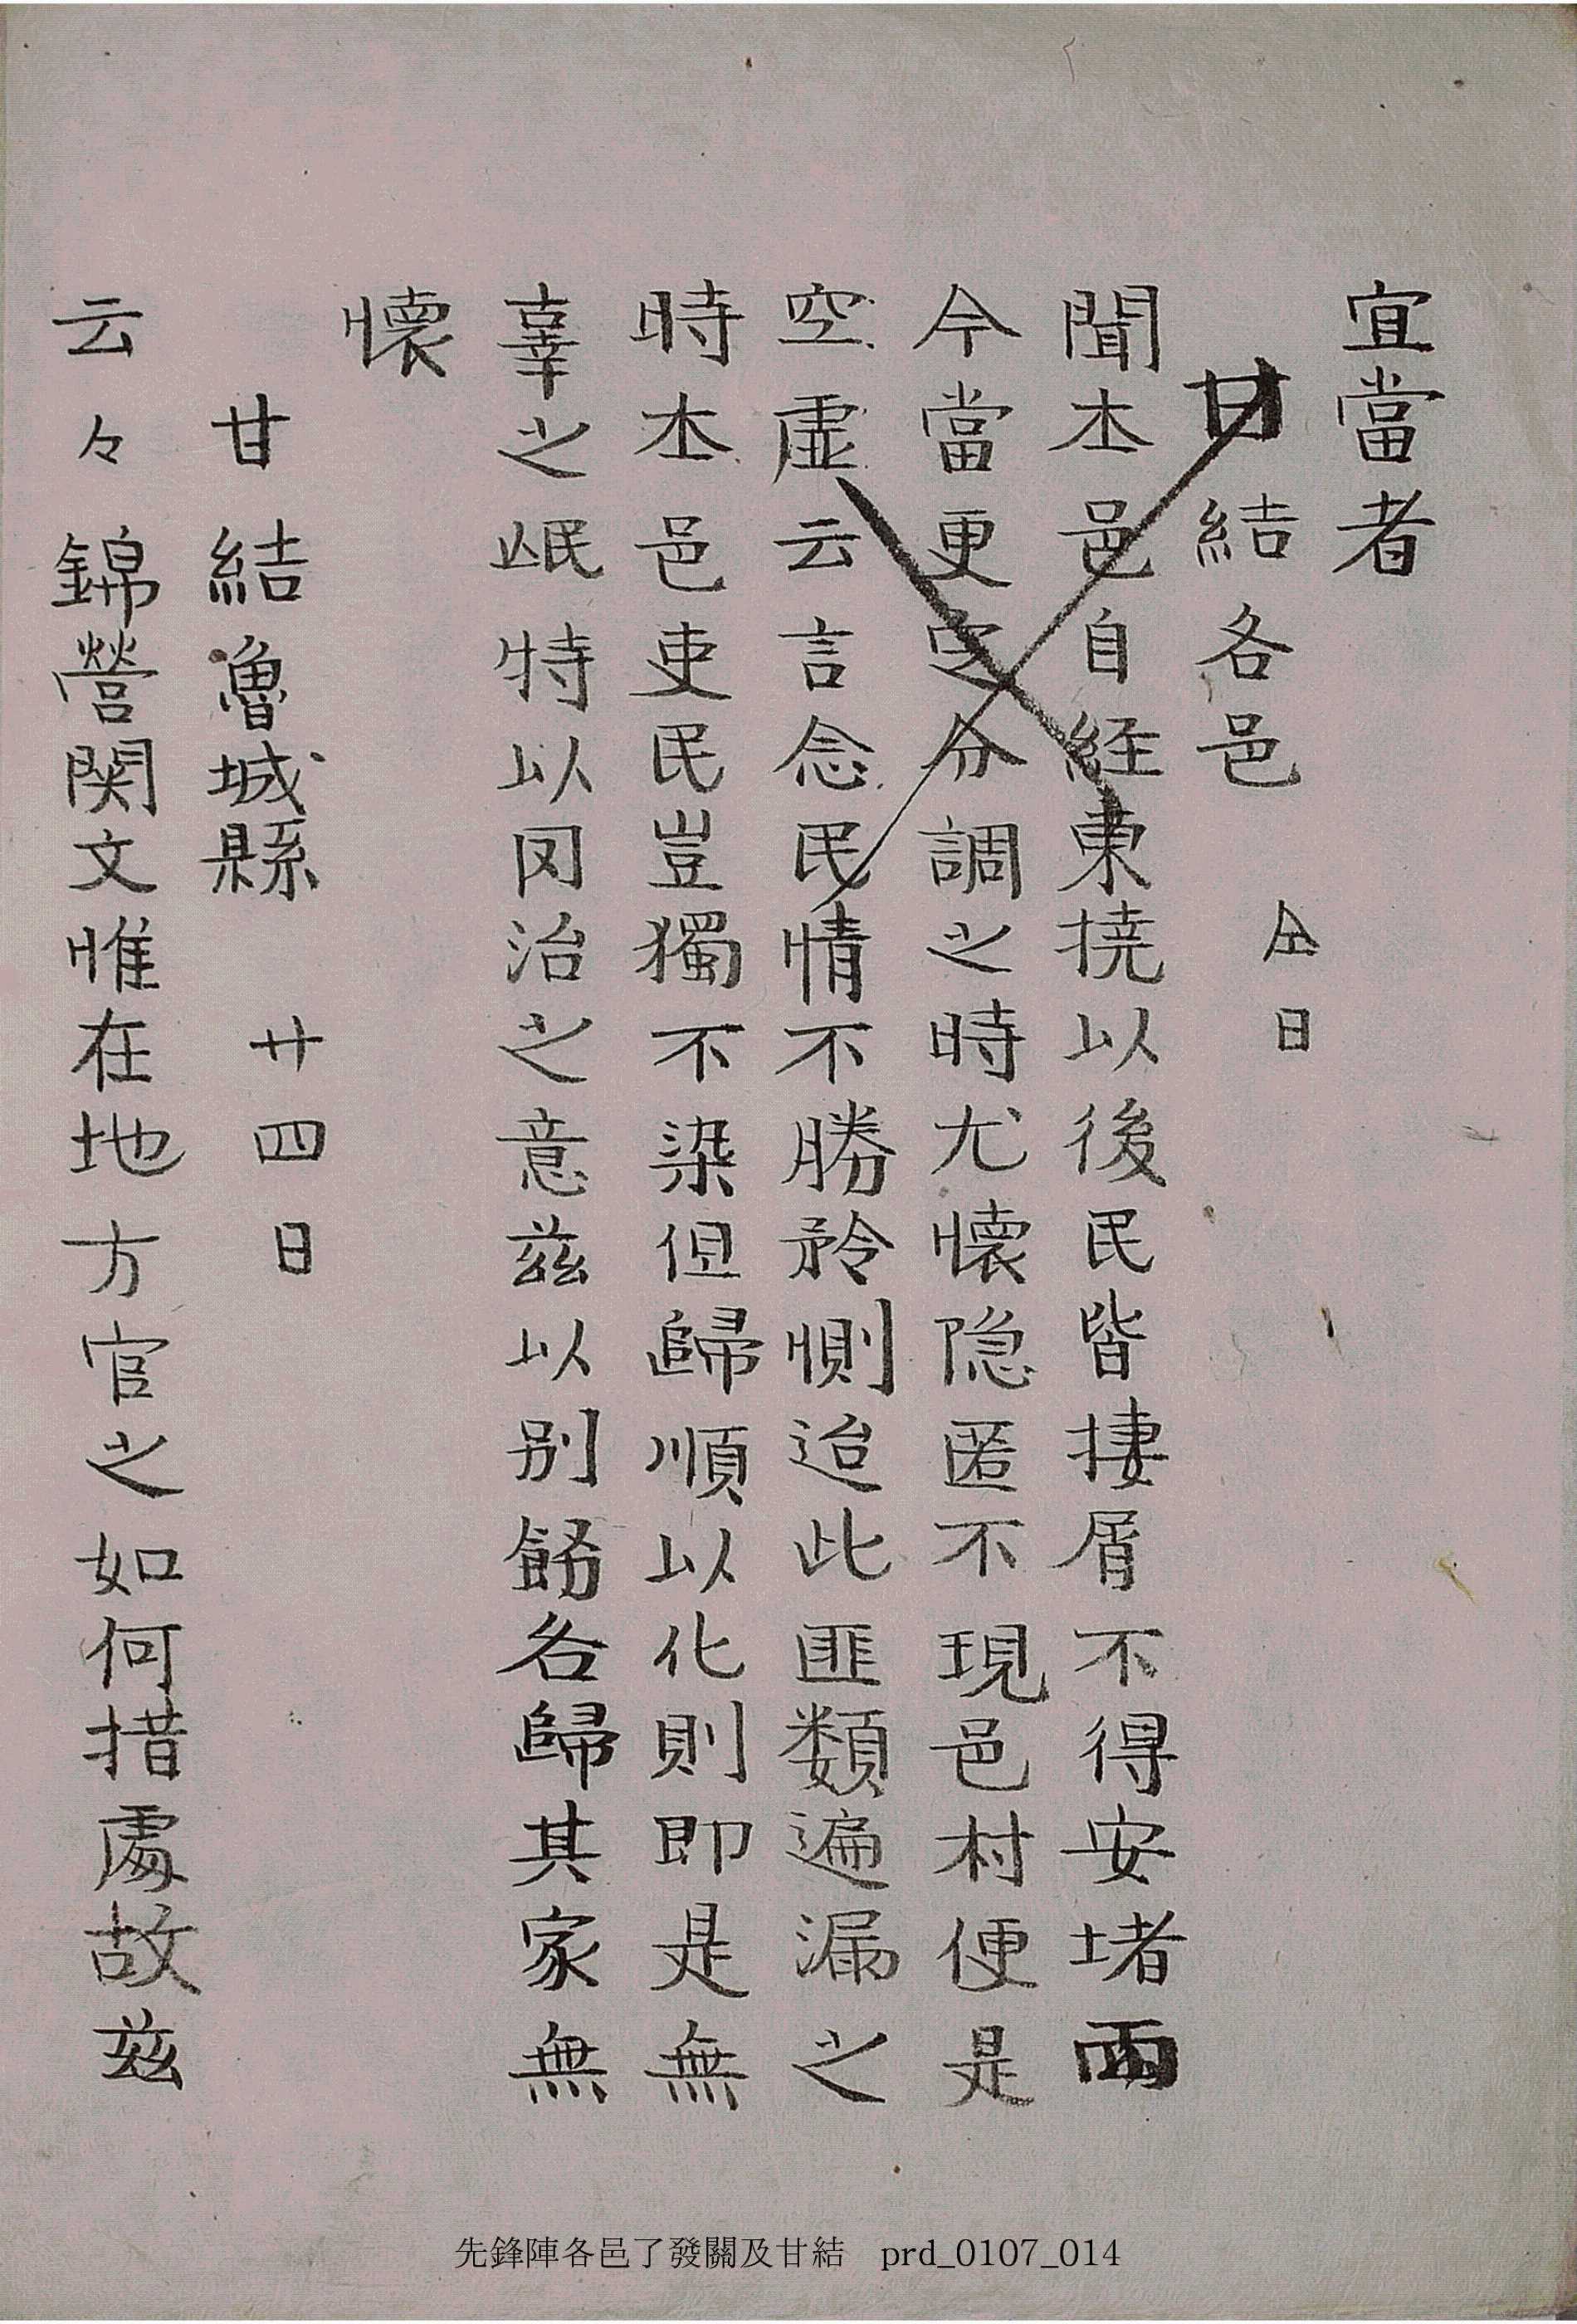 宜當者
甘結各邑 仝日
聞本邑自經東撓以後民皆捿屑不得安堵而
今當更定分調之時尤懷隐匿不現邑村便是
空虛云言念民情不勝矜惻迨此匪類遍漏之
時本邑吏民豈獨不染但歸順以化則即是無
辜之氓特以罔治之意茲以別飭各歸其家無
懷
甘結魯城縣 廿四日
云々錦營関文惟在地方官之如何措處故茲
先鋒陣各邑了發關及甘結 prd_0107_014